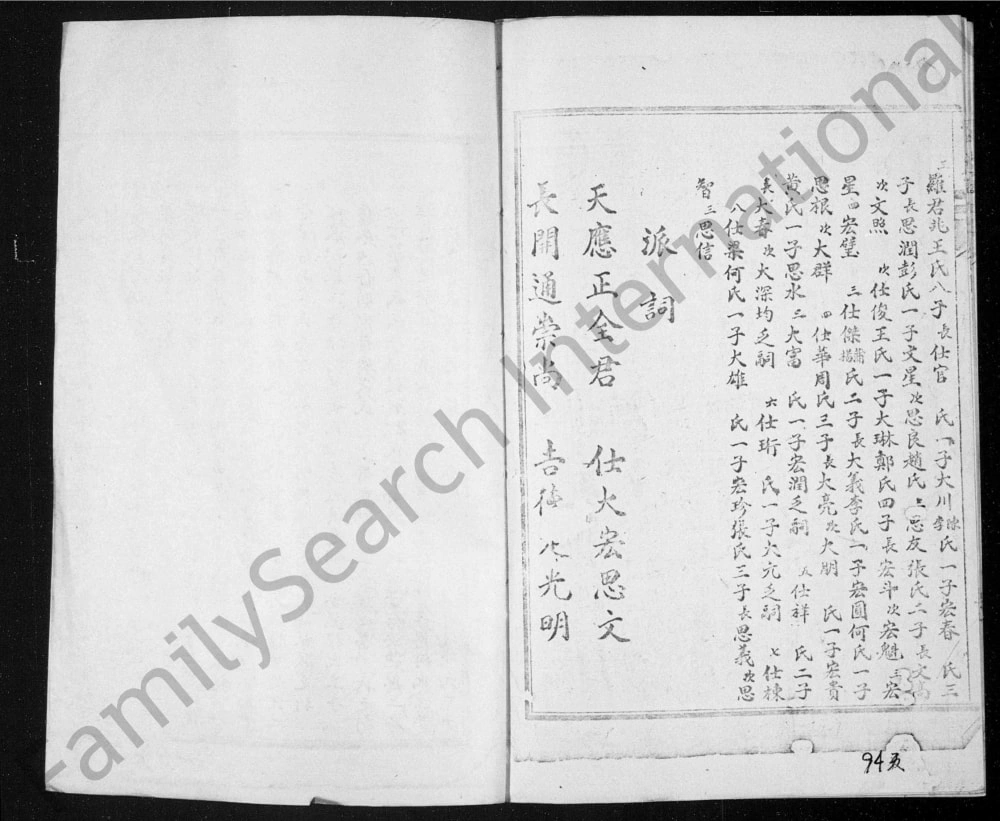 二羅君兆王氏八子長仕官 氏一子大川陳李氏一子宏春 氏三
子長思潤彭氏一子文星次思良趙氏 三思友張氏二子長文
次文照 次仕俊王氏一子大琳鄭氏四子長宏斗次宏魁三宏
星四宏璧 三仕傑蕭楊氏二子長大義李氏一子宏圓何氏一子
思根次大群 四仕華周氏三子長大亮次大朋 氏一子宏貴
黄氏一子思水三大富 氏一子宏潤乏嗣 五仕祥 氏二子
長大壽次大深均乏嗣 六仕珩 氏一子大亢乏嗣 七仕棟
八仕梁何氏一子大雄 氏一子宏珍張氏三子長思義次思
智三思信
派詞
天應正全君 仕大宏思文
長開通崇尚 吉 光明
94页
FamilySearch International